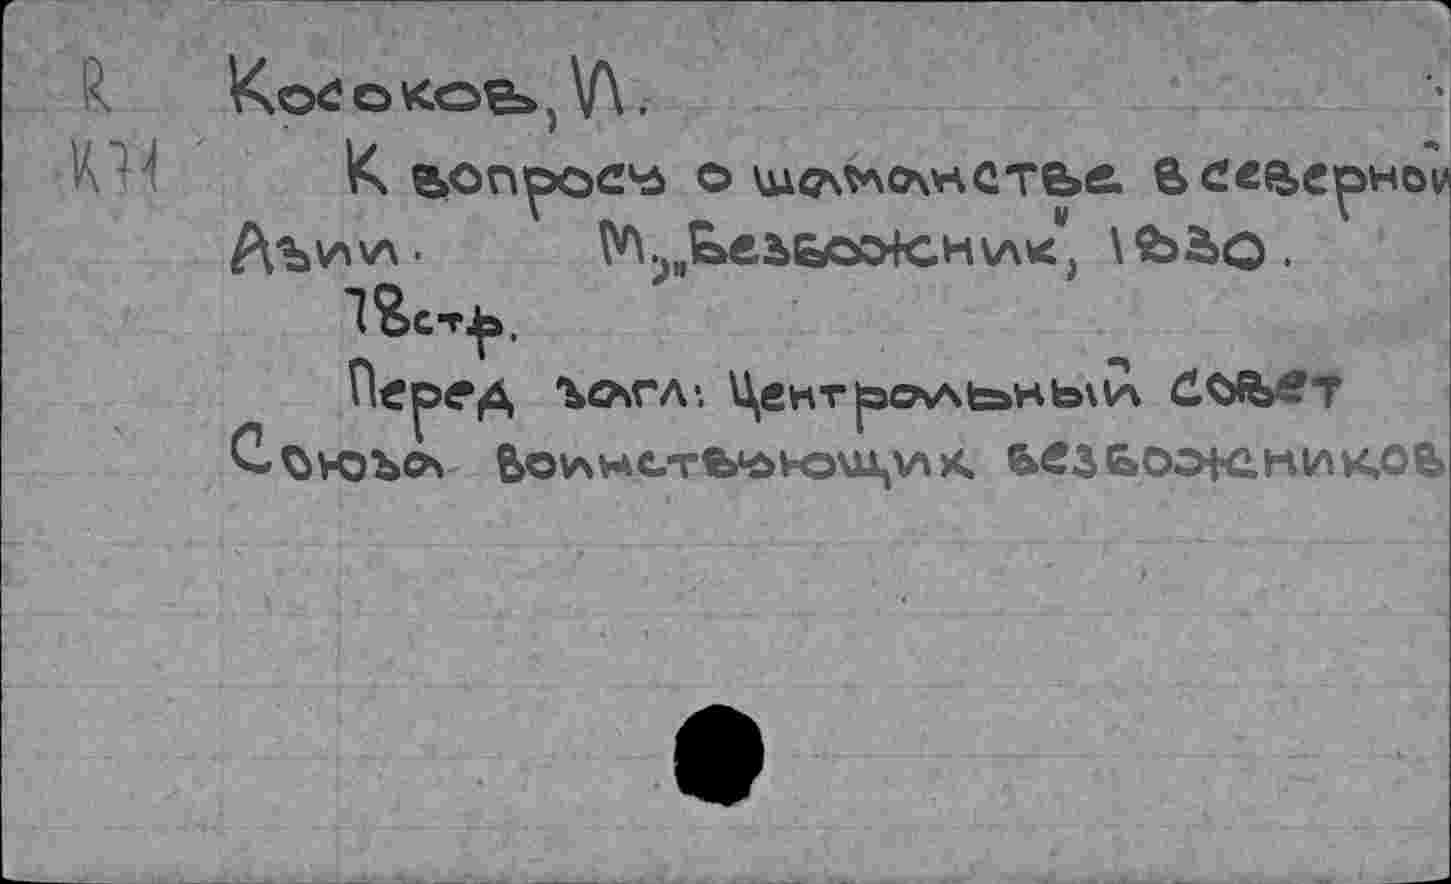 R Косоков, И.
К71 К вопросу о шаманстве в северной
Азии. М., „Безбожник“, 1930.
78стр.
Перед загл: Центральный Совет
Союза воинствующих безбожников